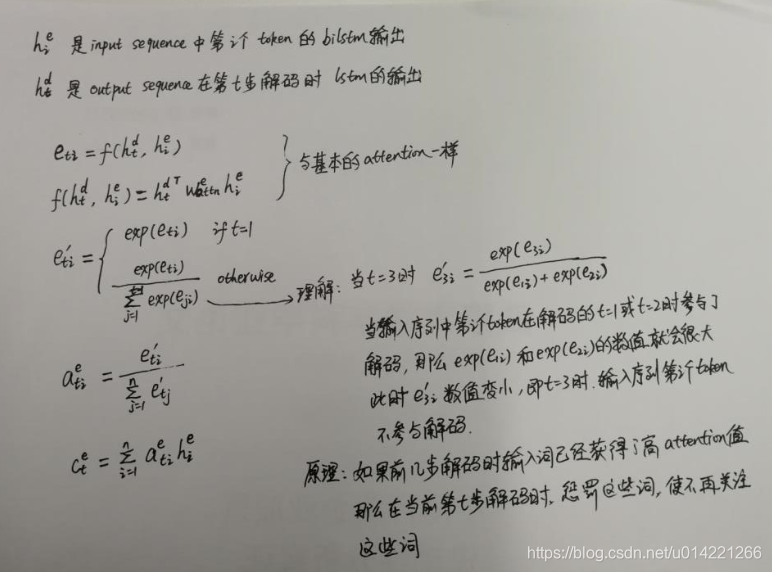 h_i^e 是 input sequence 中第i个 token 的 bilstm 输出
h_t^d 是 output sequence 在第t步解码时 lstm的输出
e_{ti} = f(h_t^d, h_i^e)
f(h_t^d, h_i^e) = h_t^{dT} W_{attn}^e h_i^e
} 与基本的attention一样
e'_{ti} = { exp(e_{ti}) if t=1
exp(e_{ti}) / Σ_{j=1}^{t-1} exp(e_{ji}) otherwise
→ 理解: 当t=3时 e'_{3i} = exp(e_{3i}) / (exp(e_{1i}) + exp(e_{2i}))
当输入序列中第i个token在解码的t=1或t=2时参与了
解码, 那么 exp(e_{1i}) 和exp(e_{2i})的数值就会很大
此时 e'_{3i} 数值变小, 即t=3时. 输入序列第i个token
不参与解码.
a_{ti}^e = e'_{ti} / Σ_{j=1}^{n} e'_{tj}
c_t^e = Σ_{i=1}^{n} a_{ti}^e h_i^e
原理: 如果前几步解码时输入词已经获得了高attention值
那么在当前第t步解码时, 惩罚这些词, 使不再关注
这些词
https://blog.csdn.net/u014221266